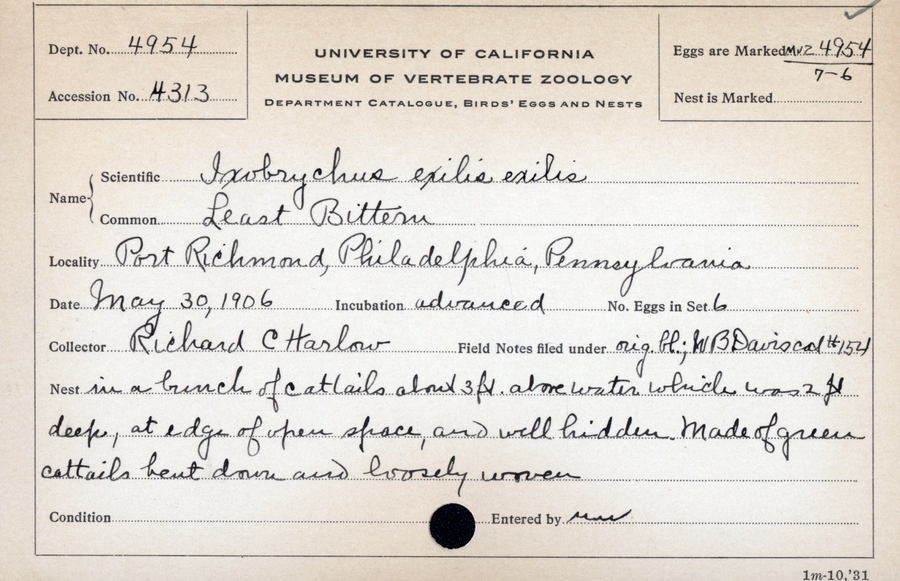 Dept. No. 4954
UNIVERSITY OF CALIFORNIA
MUSEUM OF VERTEBRATE ZOOLOGY
DEPARTMENT CATALOGUE, BIRDS' EGGS AND NESTS
Accession No. 4313
Eggs are Marked MVZ 4954
7-6
Nest is Marked
Name
Scientific Ixobrychus exilis exilis
Common Least Bittern
Locality Port Richmond, Philadelphia, Pennsylvania
Date May 30, 1906 Incubation advanced No. Eggs in Set 6
Collector Richard C Harlow Field Notes filed under orig. bl.; W B Davis col #154
Nest in a bunch of cattails about 3 ft. above water which was 2 ft
deep, at edge of open space, and well hidden. Made of green
cattails bent down and loosely woven
Condition Entered by
1m-10,'31